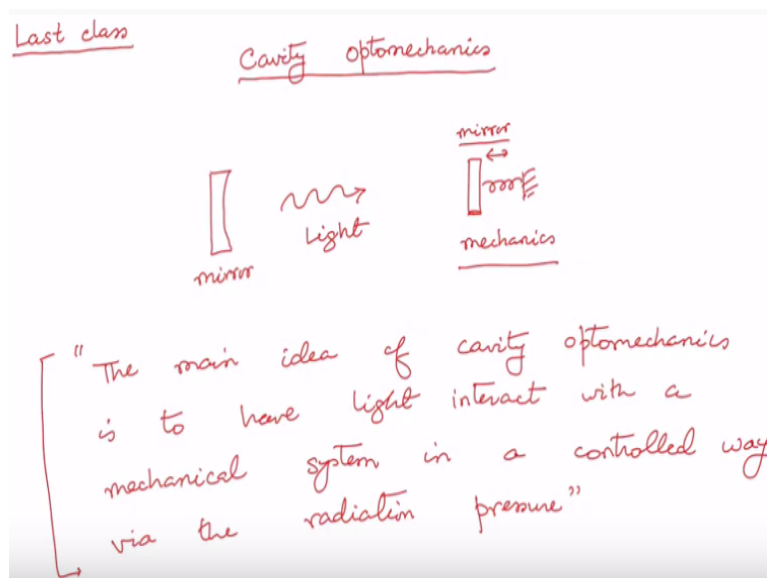 Last class
Cavity optomechanics
mirror
Light
mirror
mechanics
"The main idea of cavity optomechanics
is to have light interact with a
mechanical system in a controlled way
via the radiation pressure"